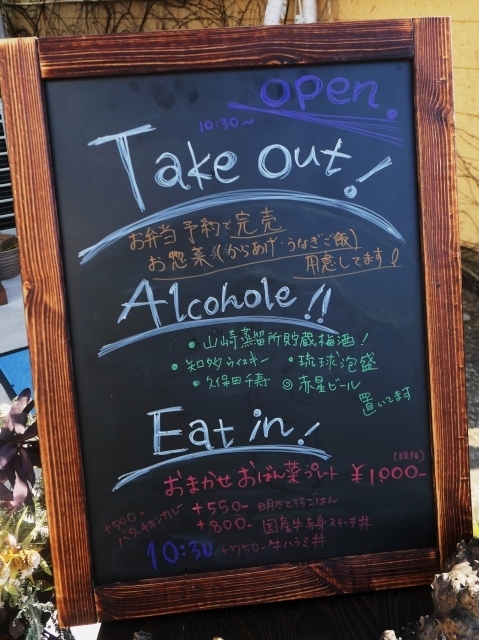 open.
10:30~
Take out!
お弁当 予約で完売
お惣菜(からあげ・うなぎご飯)
用意してます!
Alcohole!!
・山崎蒸留所貯蔵梅酒!
・知多ウィスキー ・琉球泡盛
・久保田千寿 ◎赤星ビール
置いてます
Eat in!
(税抜)
おまかせおばん菜プレート ¥1000-
+500- バターチキンカレー
+550- 明太とろろごはん
+800- 国産牛赤身ステーキ丼
10:30 +750- 牛ハラミ丼